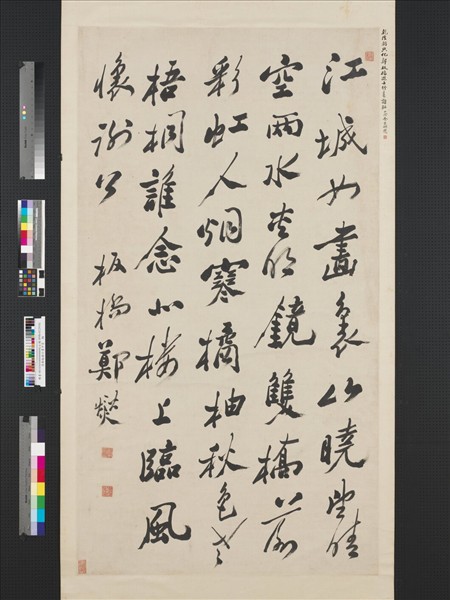 江城如畫裏山曉望晴
空兩水夾明鏡雙橋落
彩虹人烟寒橘柚秋色老
梧桐誰念北樓上臨風
懷謝公 板橋鄭燮